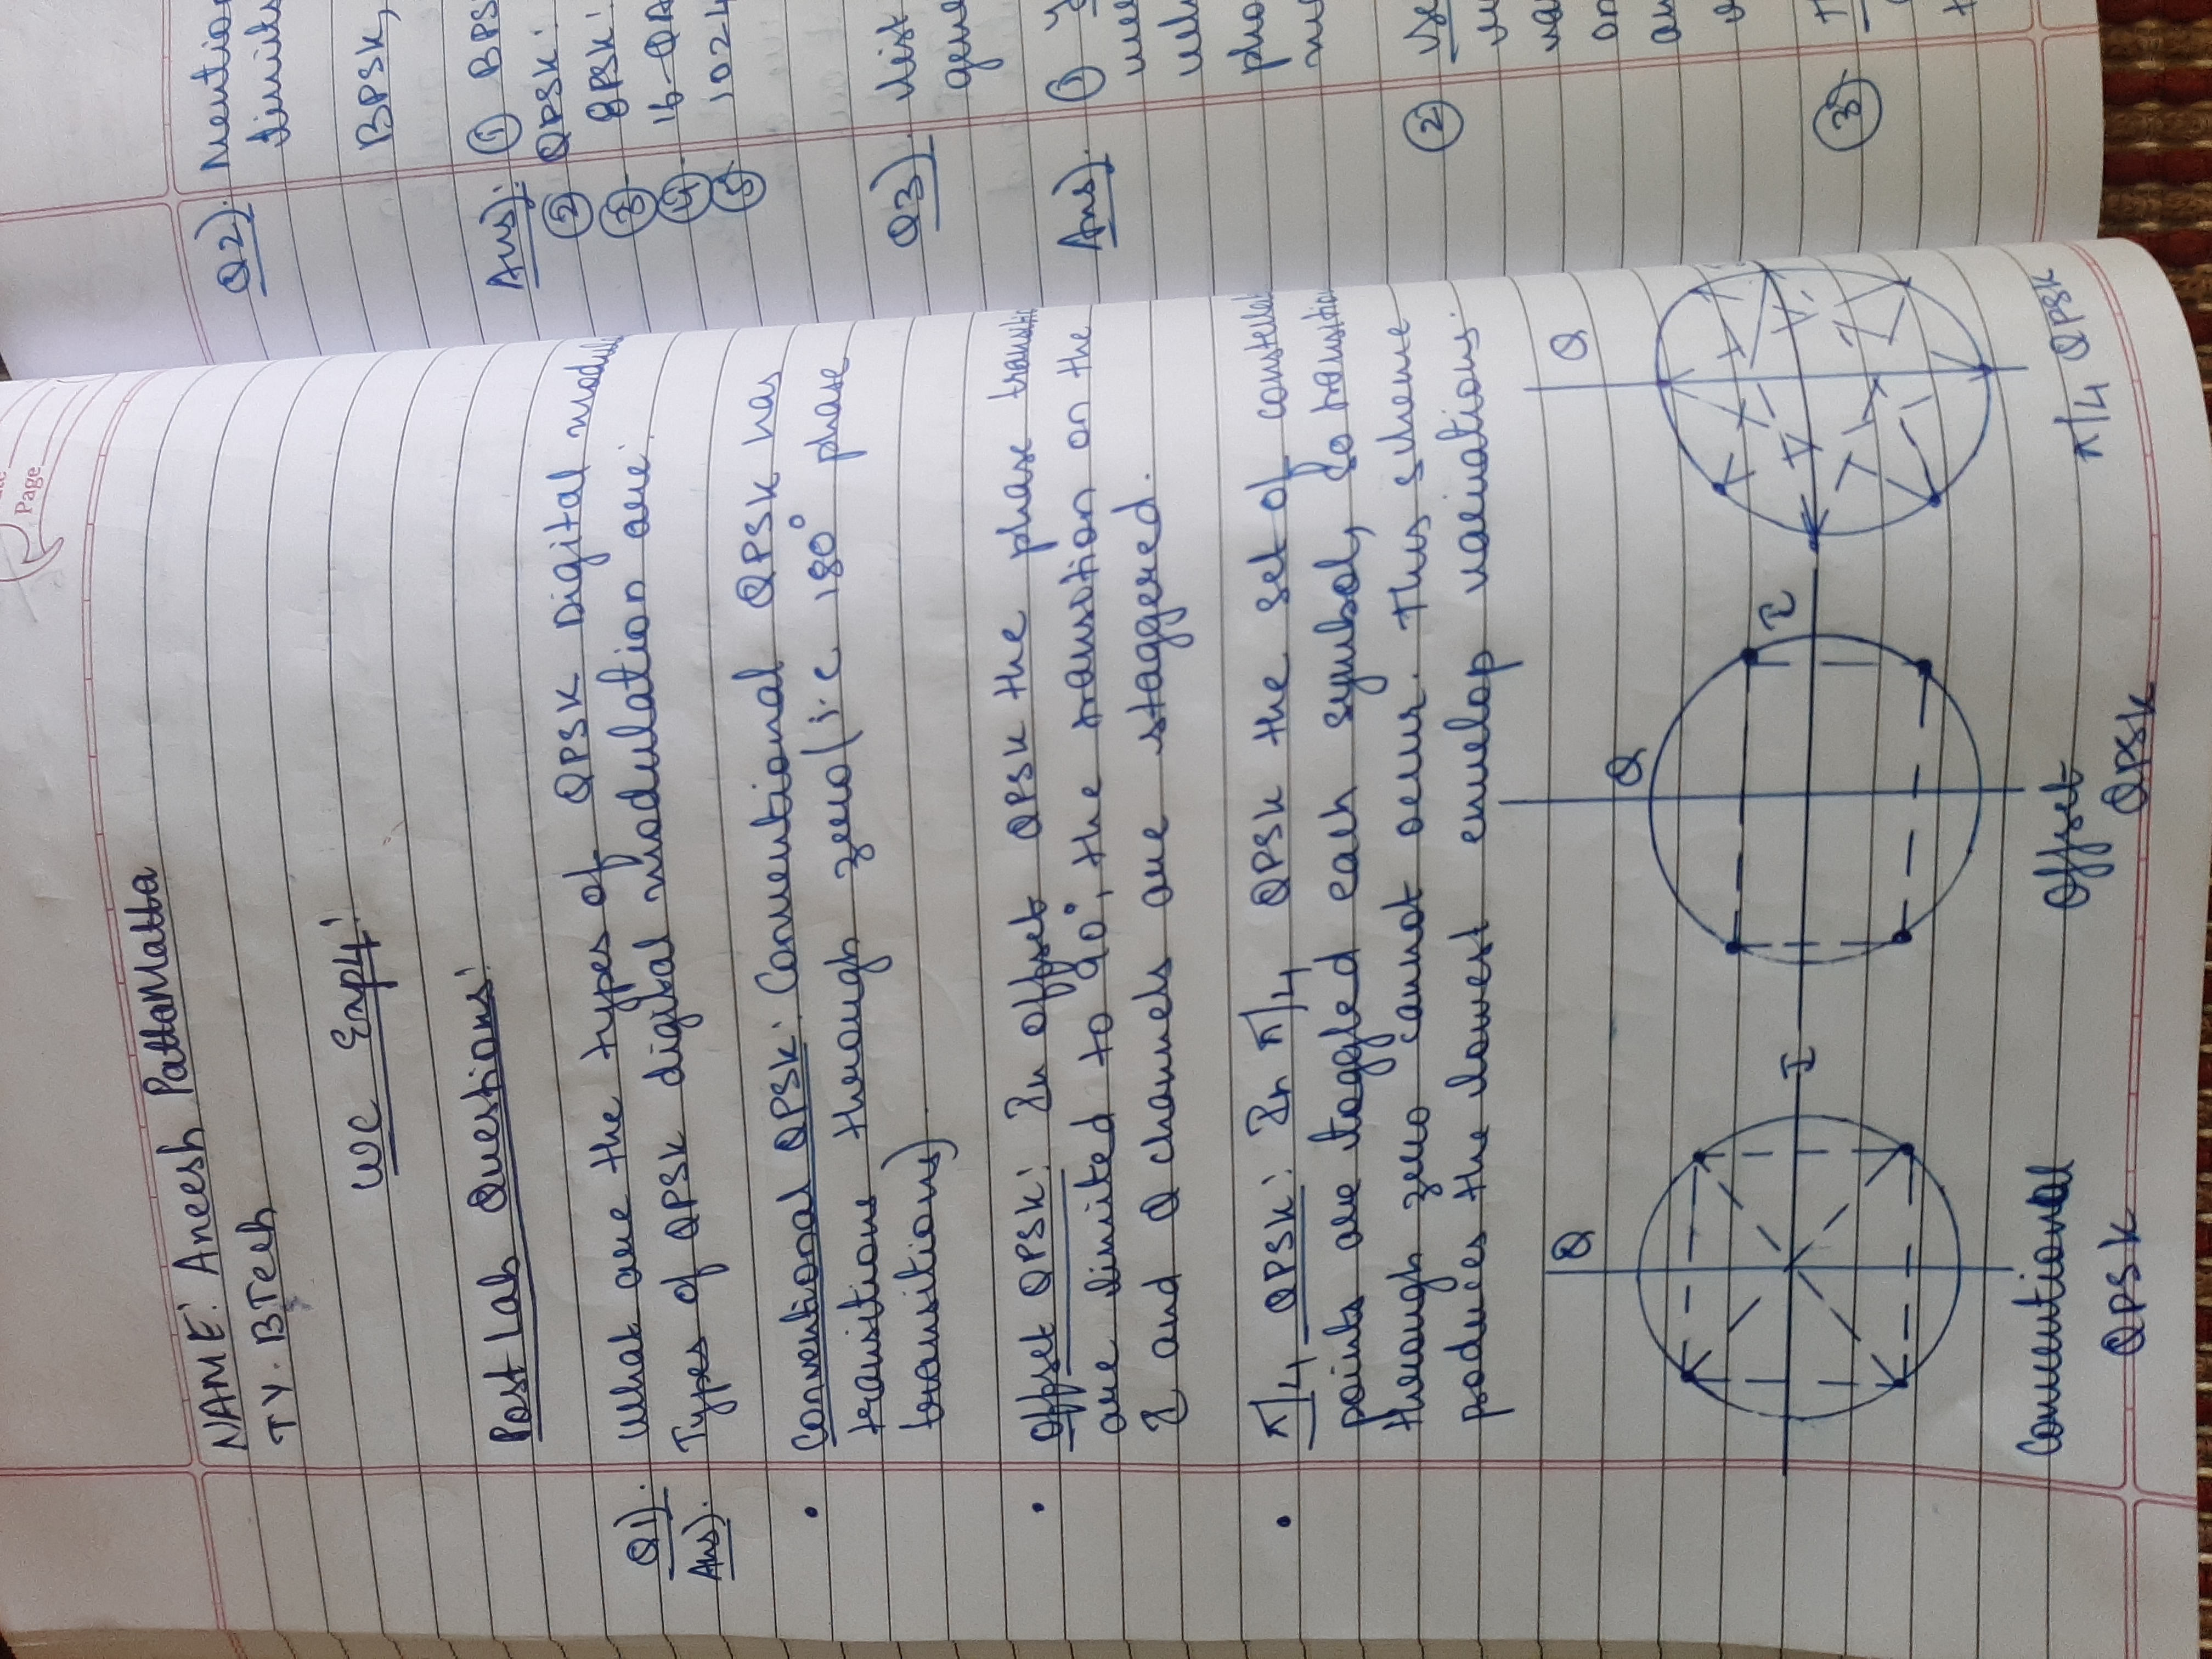 Page
NAME: Aneesh PattaMatta
TY. BTech
WC Exp4:
Post Lab Questions:
Q1). What are the types of QPSK Digital modul
Ans). Types of QPSK digital modulation are:
• Conventional QPSK: Conventional QPSK has
transitions through zero (i.e. 180° phase
transitions).
• Offset QPSK: In Offset QPSK the phase transiti
are limited to 90°, the transition on the
I and Q channels are staggered.
• π/4 QPSK: In π/4 QPSK the set of constellat
points are toggled each symbol, so transition
through zero cannot occur. This scheme
produces the lowest envelop variations.
Q
I
Conventional
QPSK
Q
I
Offset
QPSK
Q
π/4 QPSK
Q2). Mentio
limits
BPSK,
Ans): ① BPS
② QPSK:
③ 8PSK:
④ 16-QA
⑤ 1024
Q3). List
gene
Ans). ①
pho
②
③